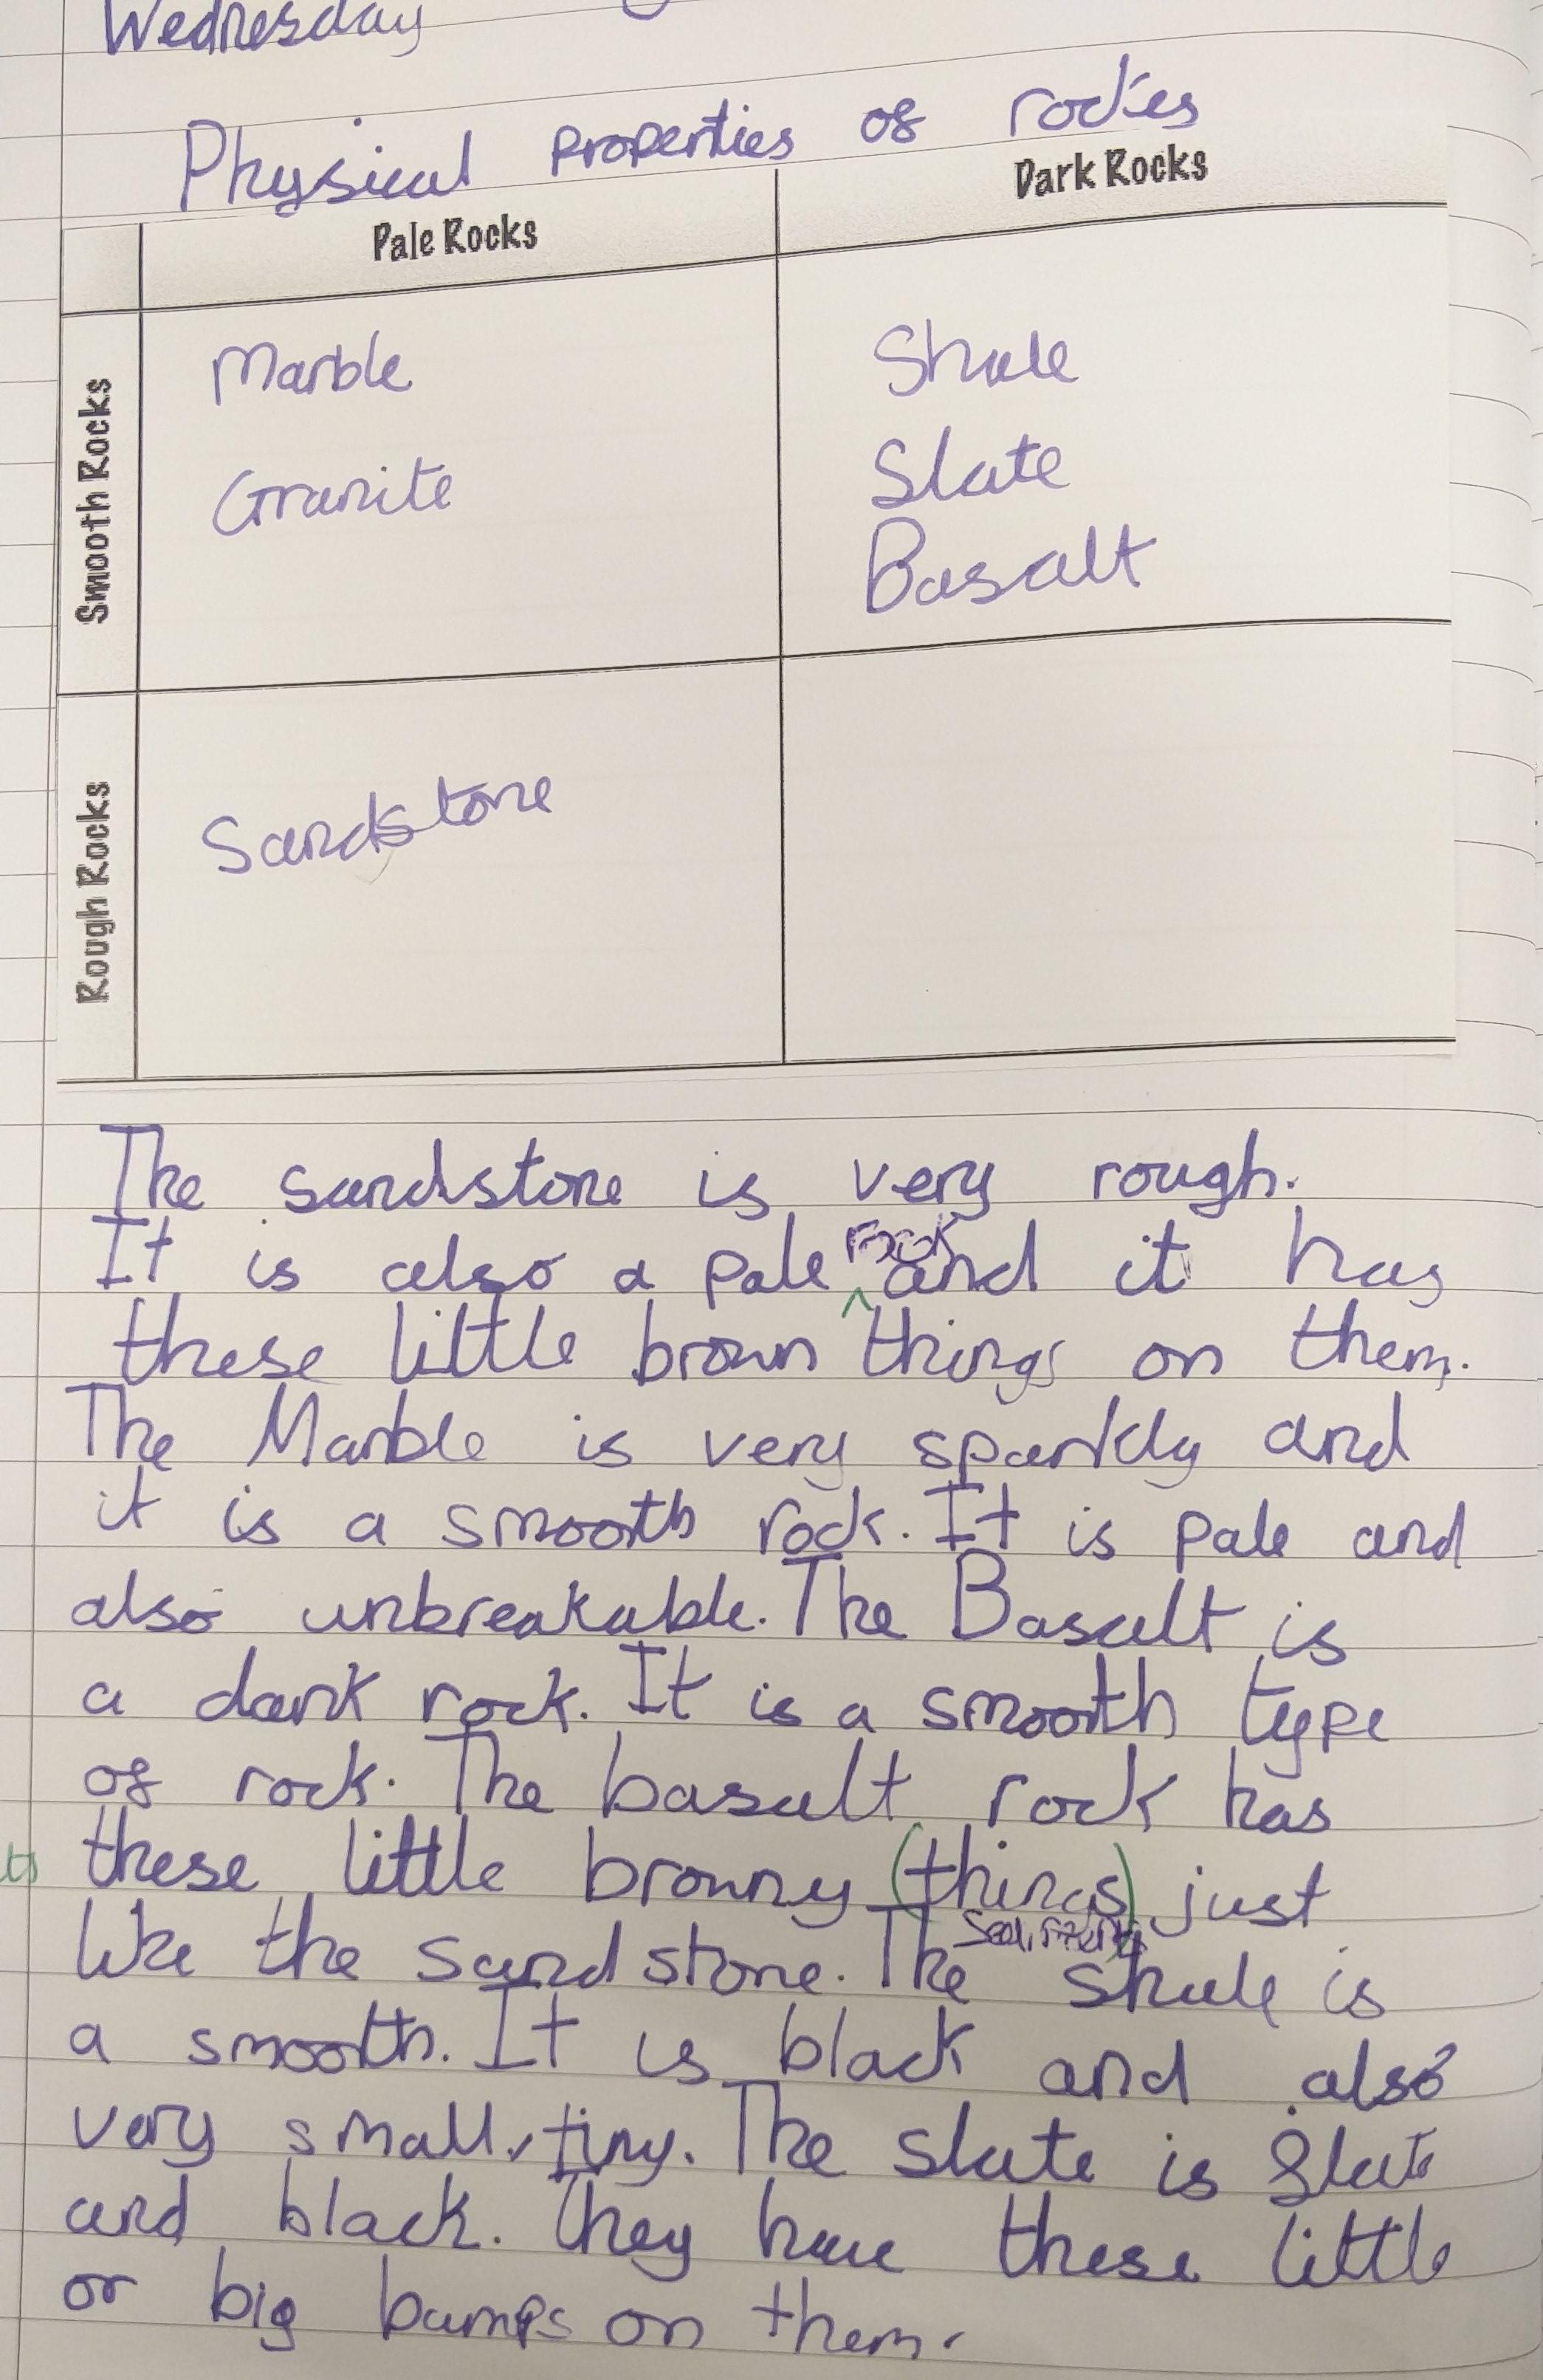 Wednesday
Physical properties of rockes
Pale Rocks
Dark Rocks
Smooth Rocks
Marble
Granite
Shale
Slate
Basalt
Rough Rocks
Sandstone
The sandstone is very rough.
It is also a pale rock and it has
these little brown things on them.
The Marble is very sparkly and
it is a smooth rock. It is pale and
also unbreakable. The Basalt is
a dark rock. It is a smooth type
of rock. The basalt rock has
these little browny (things) just
like the sandstone. The shale is
a smooth. It is black and also
very small, tiny. The slate is slate
and black. They have these little
or big bumps on them.